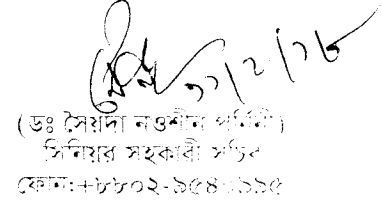 ১১/২/১৮
(ডঃ সৈয়দা নওশীন পর্ণিনী)
সিনিয়র সহকারী সচিব
ফোন:+৮৮০২-৯৫৪